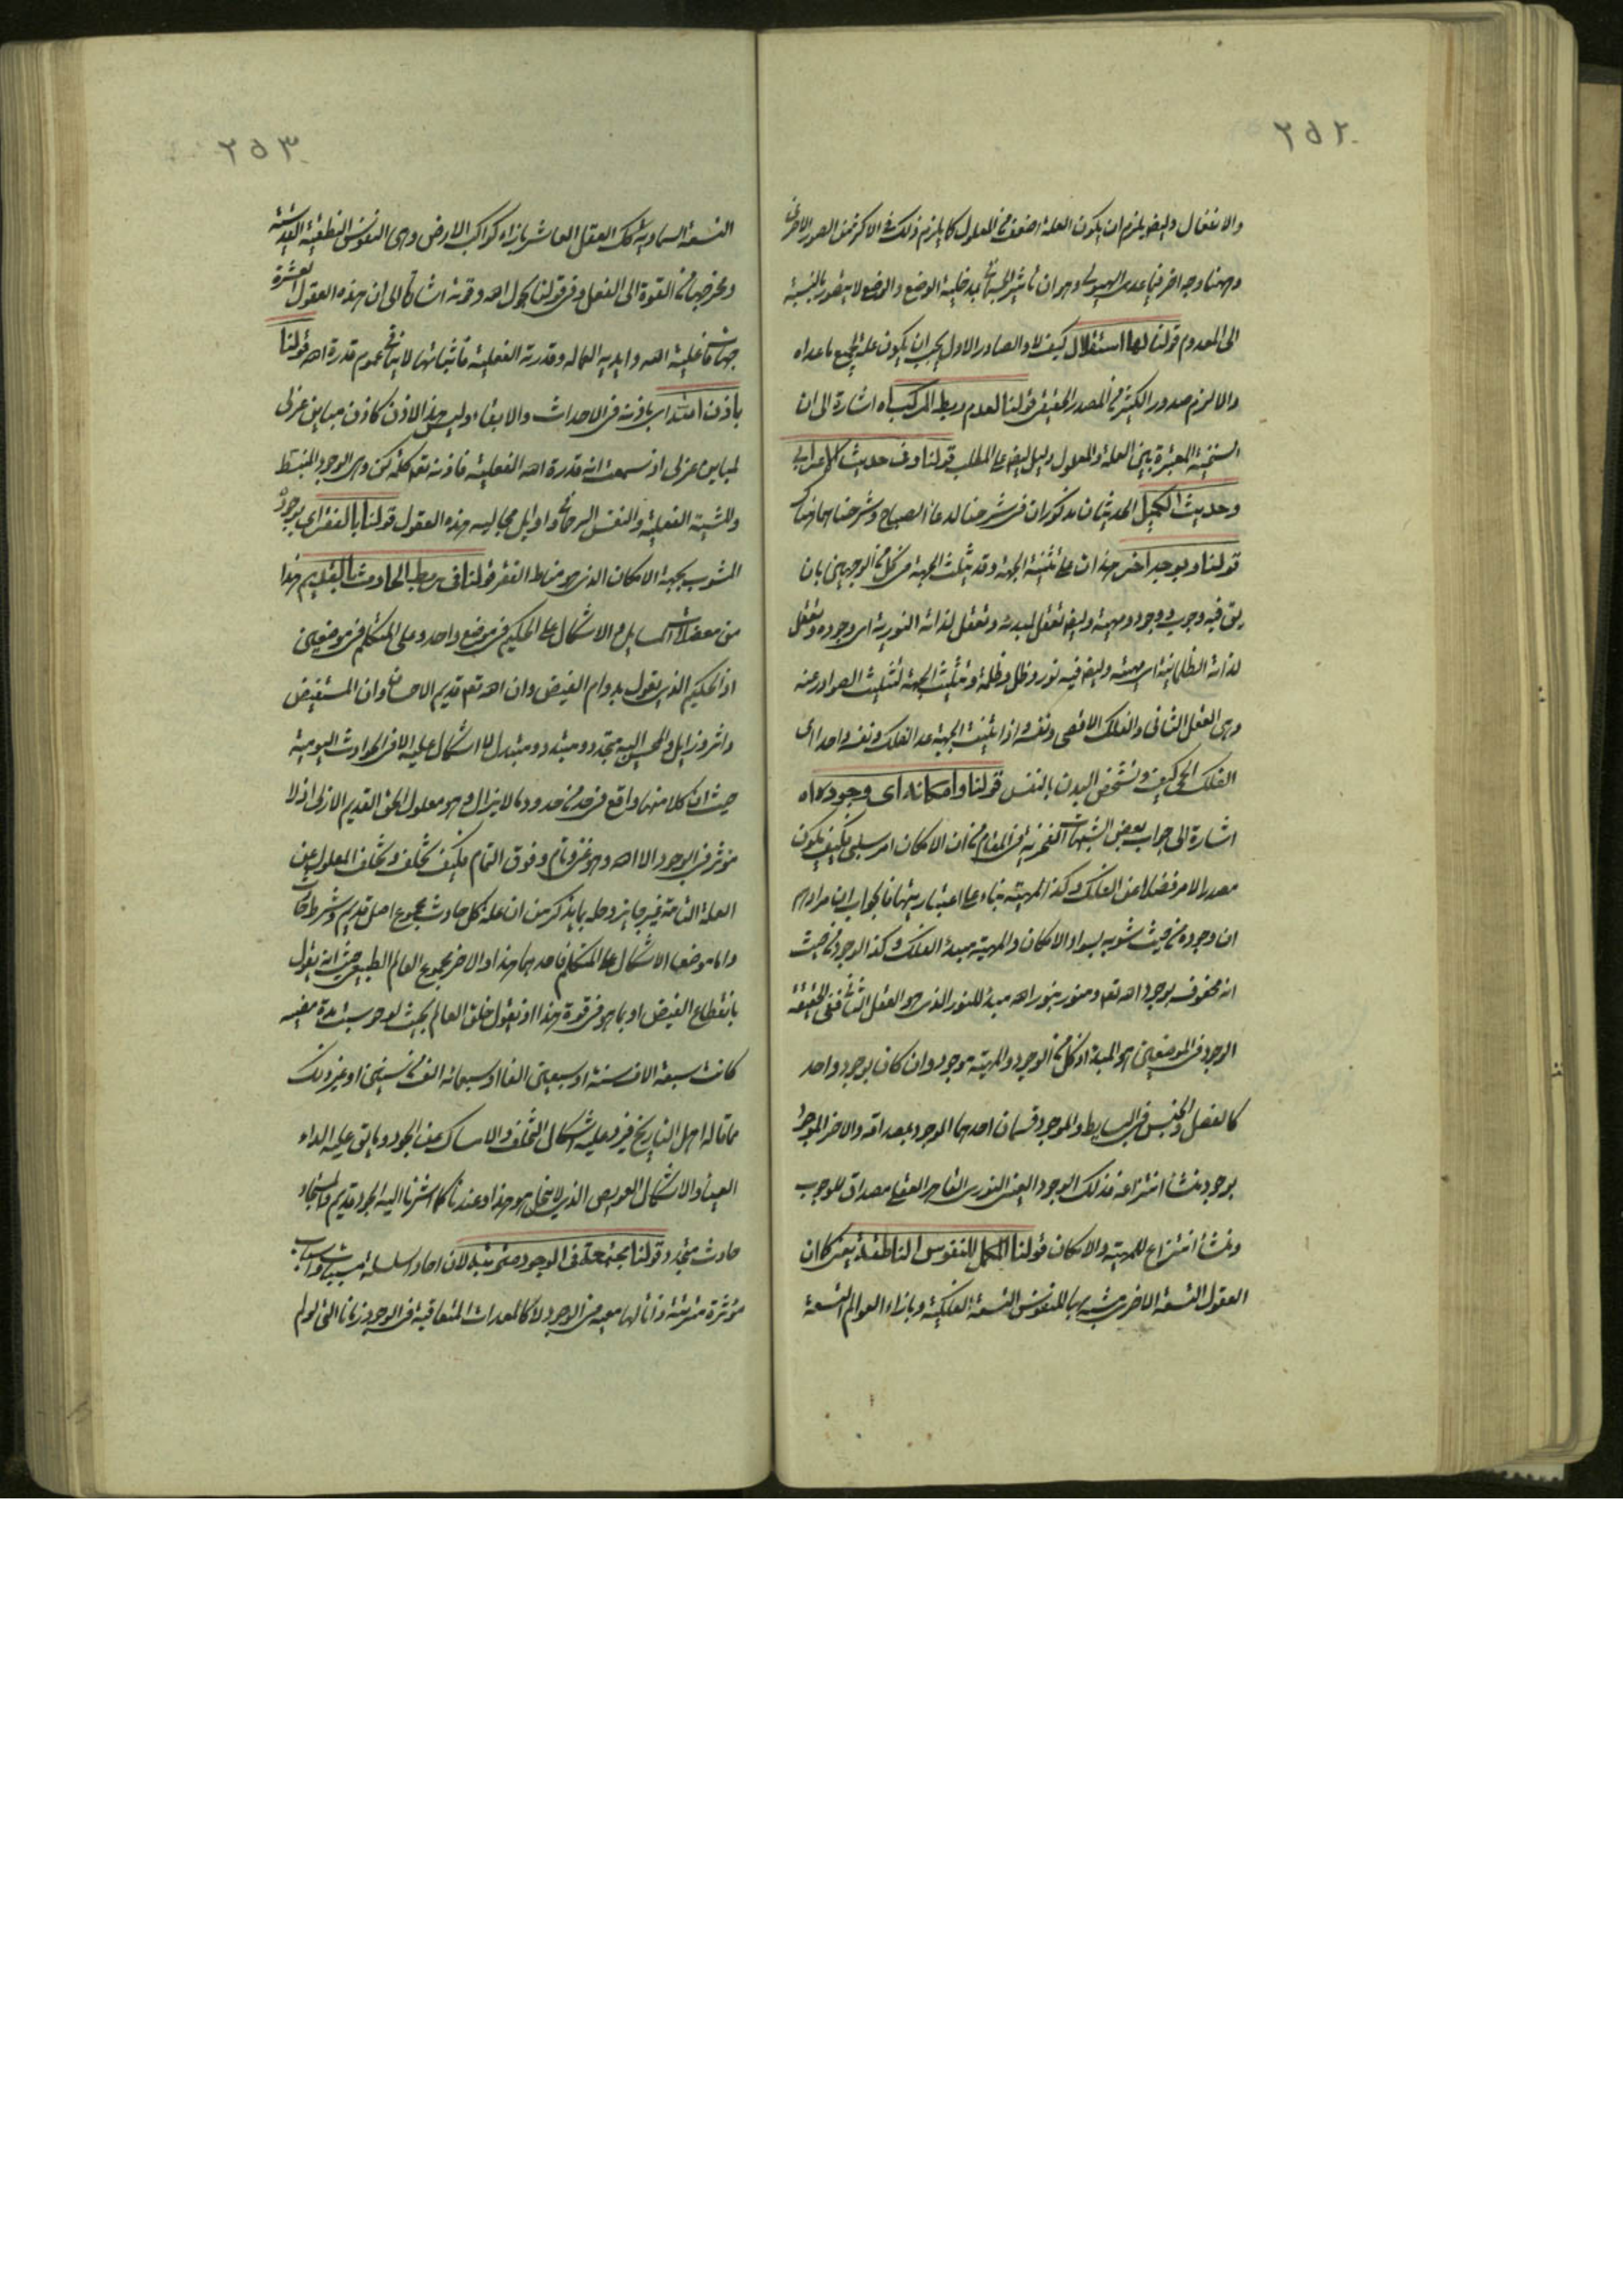 ٢٥٢
والانفعال وايض يلزم ان يكون العلة اضعف من المعلول كما يلزم ذلك فى الاكثر من الصور الاخرى
وههنا وجه اخر فيما عدى الهيولى وهو ان تاثير الجسمانى بمدخلية الوضع والوضع لا يتصور بالنسبة
الى المعدوم قولنا لها استقلال كيف لا والصادر الاول يجب ان يكون علة لجميع ما عداه
والا لزم صدور الكثير من المصدر الحقيقى قولنا لعدم ربط المركب اه اشارة الى ان
السنخية المعتبرة بين العلة والمعلول دليل ايض على المطلب قولنا وفى حديث الاعرابى
وحديث الكميل الحديثان مذكوران فى شرحنا لدعاء الصباح وشرحناهما هناك
قولنا وبوجه اخر هذان على تثنية الجهة وقد يثلث الجهة فى كل من الوجهين بان
يق فيه وجوب ووجود ومهية وايض تعقل لمبدئه وتعقل لذاته النورية اى وجوده وتعقل
لذاته الظلمانية اى مهيته وايض فيه نور وظل وظلمة وتثليث الجهة لتثليث الصوادر عنه
وهى العقل الثانى والفلك الاقصى ونفسه واذا يثنى الجهة عد الفلك ونفسه واحدا اى
الفلك الحى كيف وتشخص البدن بالنفس قولنا وامكانه اى وجوده اه
اشارة الى جواب بعض الشبهات الفخرية فى المقام من ان الامكان امر سلبى فكيف يكون
مصدرا لامر فضلا عن الفلك وكذا المهية بناء على اعتباريتها فالجواب ان مرادهم
ان وجوده من حيث شوبه بسواد الامكان والمهية مبدء الفلك وكذا الوجود من حيث
انه محفوف بوجود الله تعم ومنور بنور الله مبدء للنور الذى هو العقل الثانى ففى الحقيقة
الوجود فى الموضعين هو المبدء اذ كل من الوجود والمهية موجود وان كان بوجود واحد
كالفصل والجنس فى البسايط والموجود قسمان احدهما الموجود بمصداقه والاخر الموجود
بوجود منشا انتزاعه فذلك الوجود العينى النورى القاهر العقلى مصداق للوجوب
ومنشا انتزاع للمهية والامكان قولنا المكمل للنفوس الناطقة يعنى كما ان
العقول التسعة الاخرى متشبه بها للنفوس التسعة الفلكية وبازاء العوالم التسعة
٢٥٣
التسعة السماوية كك العقل العاشر بازاء كواكب الارض وهى النفوس النطقية القدسية
ومخرجها من القوة الى الفعل وفى قولنا بحول الله وقوته اشارة الى ان هذه العقول العشرة
جهات فاعلية الله وايديه العمالة وقدرته الفعلية فاثباتها لا ينافى عموم قدرة الله قولنا
باذن الله اى باذنه فى الاحداث والابقاء وليس هذا الاذن كاذن مباين عزلى
لمباين عزلى اذ سمعت انه قدرة الله الفعلية فاذنه تعم كلمة كن وهى الوجود المنبسط
والمشية الفعلية والنفس الرحمانى واوايل مجاليه هذه العقول قولنا بالفقر اى بوجوده
المشوب بجهة الامكان الذى هو مناط الفقر قولنا فى ربط الحادث بالقديم هذا
من معضلات المسايل والاشكال على الحكيم فى موضع واحد وعلى المتكلم فى موضعين
اذ الحكيم الذى يقول بدوام الفيض وان الله تعم قديم الاحسان وان المستفيض
داثر وزايل والمحسن اليه متجدد ومتبدد ومتبدل لا اشكال عليه الا فى الحوادث اليومية
حيث ان كلا منها واقع فى حد من حدود ما لا يزال وهو معلول الحق القديم الازلى اذ لا
مؤثر فى الوجود الا الله وهو غنى وتام وفوق التمام فكيف تخلف وتخلف المعلول عن
العلة التامة غير جايز وحله بما يذكر من ان علة كل حادث مجموع اصل قديم وشرط حادث
واما موضعا الاشكال على المتكلم فاحدهما هذا والاخر مجموع العالم الطبيعى حيث انه يقول
بانقطاع الفيض او بما هو فى قوة هذا اذ يقول خلق العالم بحيث لو حوسبت مدة مضيه
كانت سبعة الاف سنة او سبعين الفا او سبعمائة الف من سنين او غير ذلك
مما قاله اهل التاريخ فيرد عليه اشكال التخلف والامساك عن الجود وما بقى عليه الداء
العياء والاشكال العويص الذى لا ينحل هو هذا وعندنا كما اشرنا اليه الجود قديم والمستجاد
حادث متجدد وقولنا مجتمعة فى الوجود مترتبة لان احاد سلسلة مسببات واسباب
مؤثرة مترتبة ذاتا لها معية فى الوجود لا كالمعدات المتعاقبة فى الوجود زمانا التى لو لم